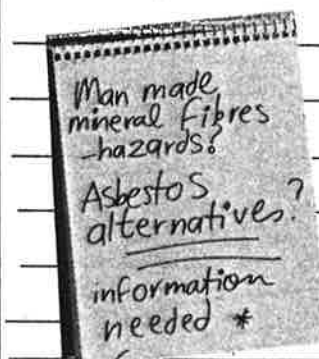 Man made
mineral fibres
-hazards?
Asbestos
alternatives?
information
needed *